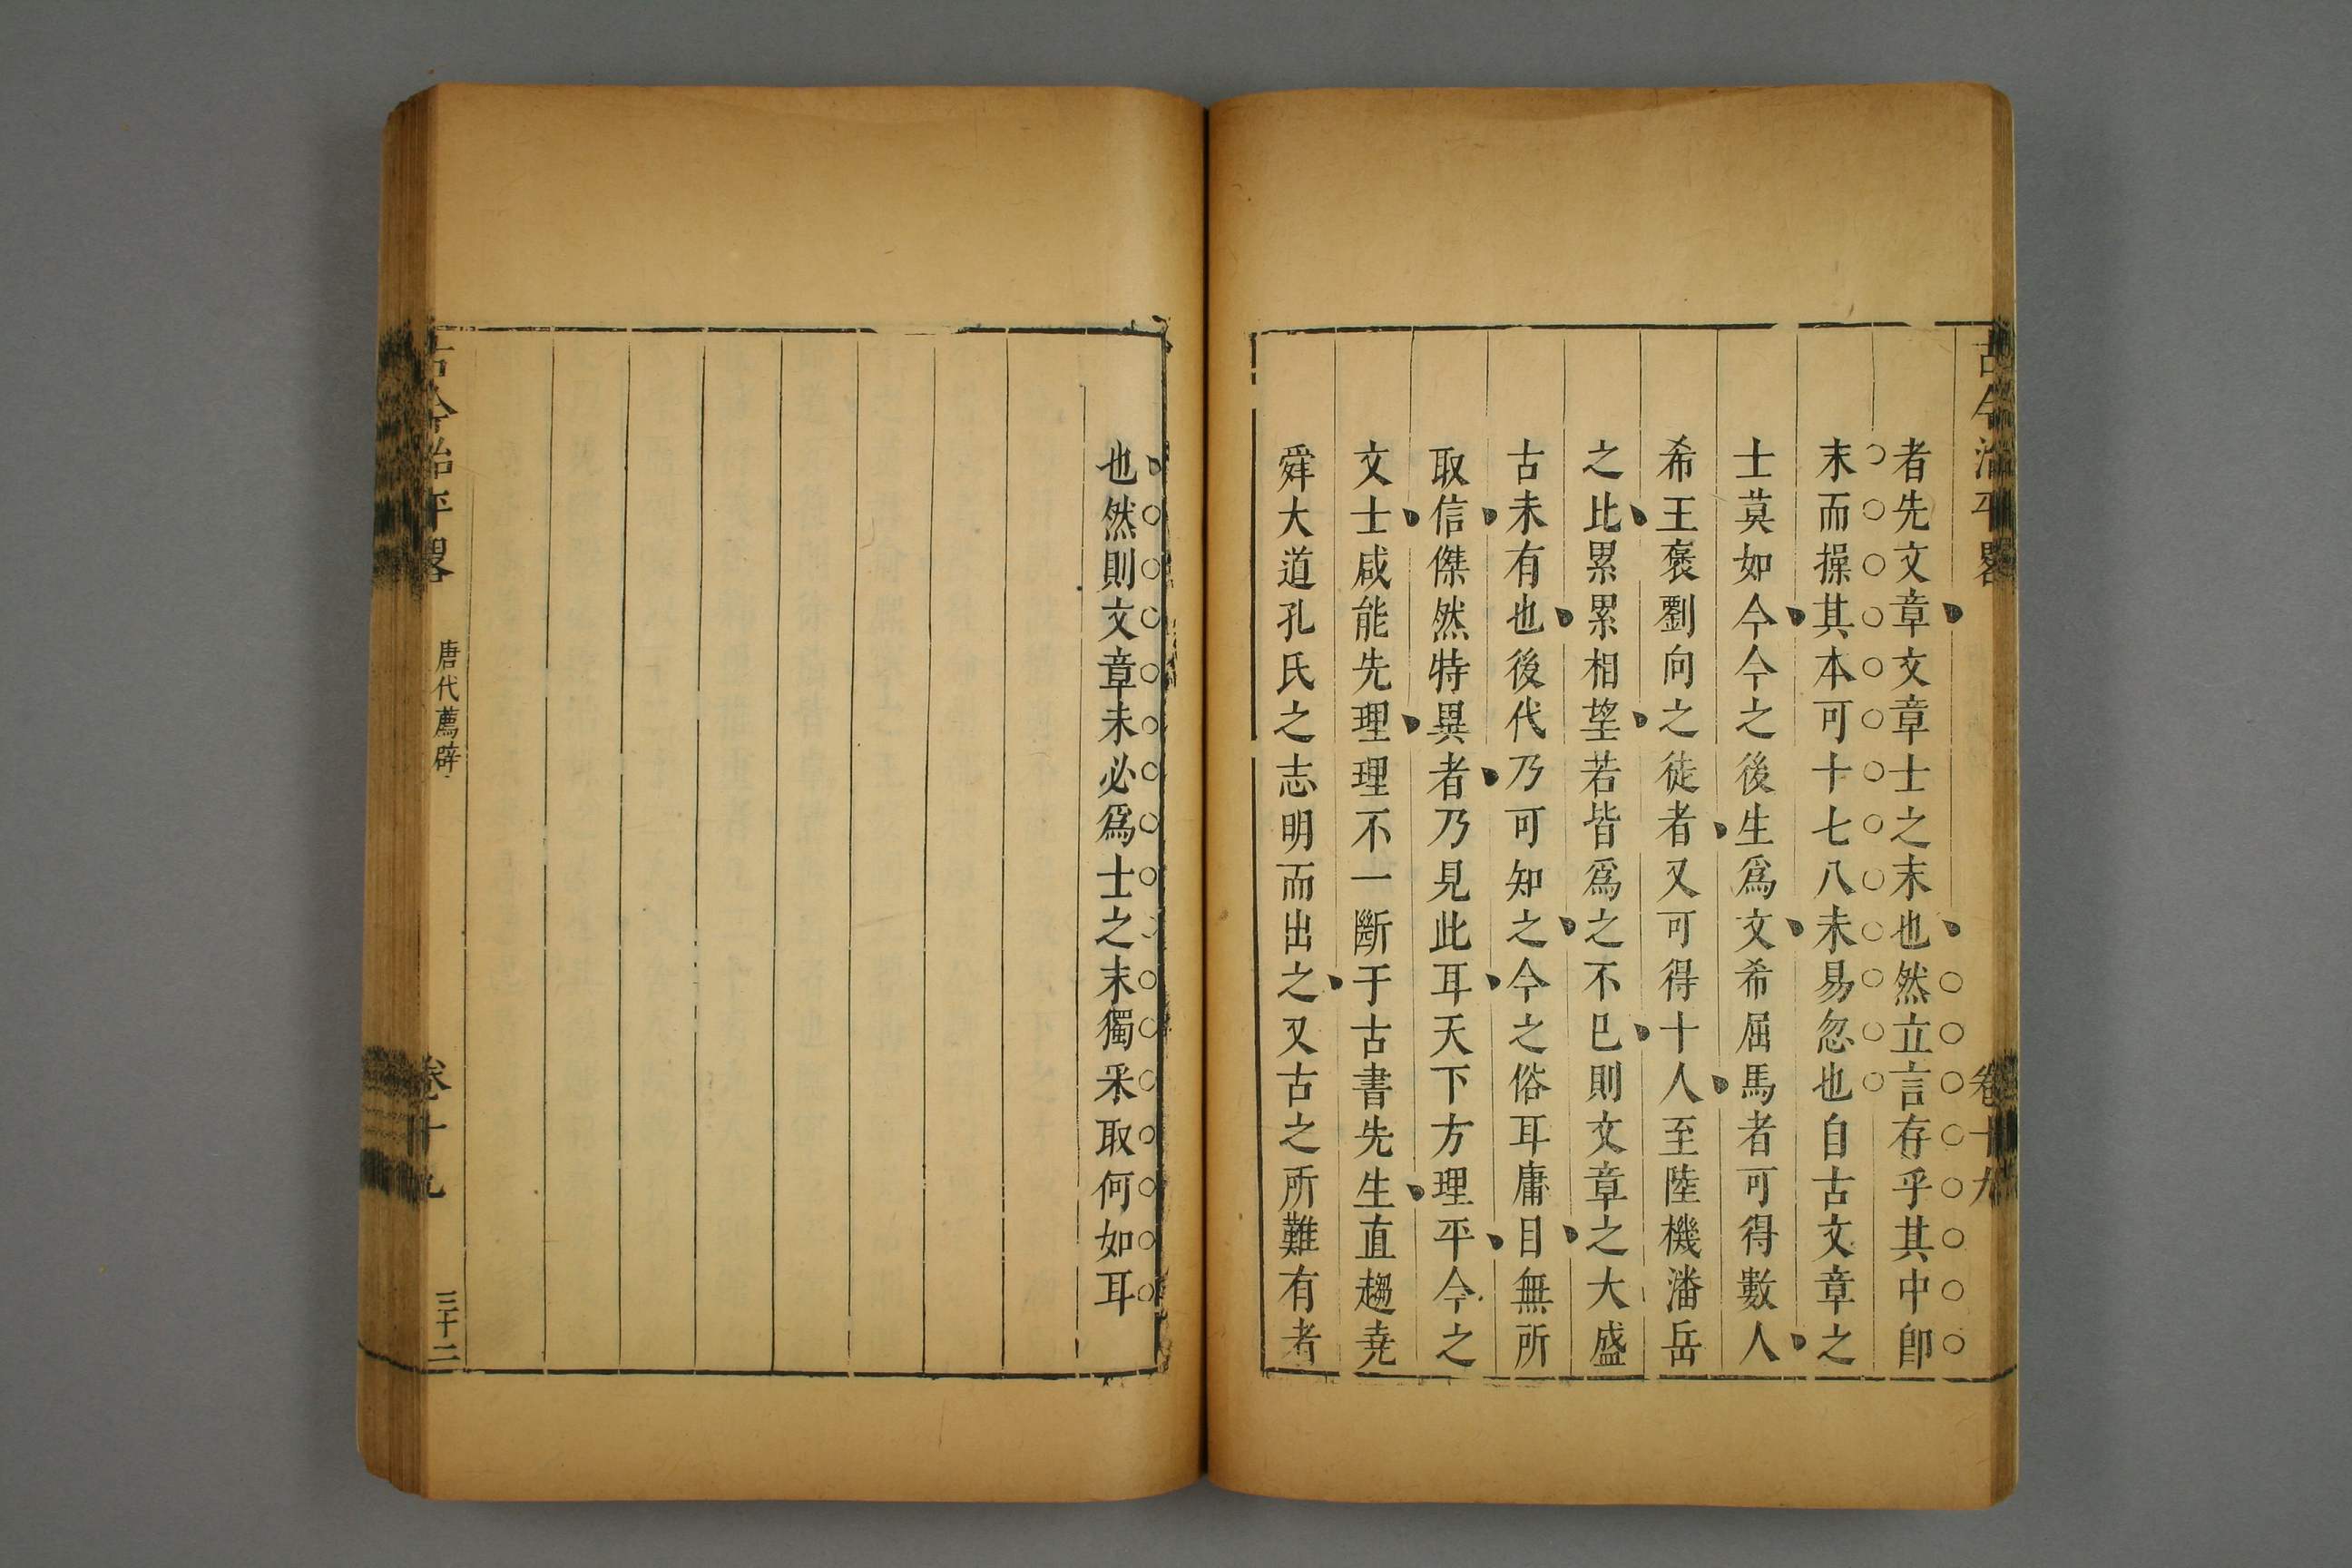 古今治平畧
卷十九
者先文章文章士之末也然立言存乎其中卽
末而操其本可十七八未易忽也自古文章之
士莫如今今之後生爲文希屈馬者可得數人
希王褒劉向之徒者又可得十人至陸機潘岳
之比累累相望若皆爲之不已則文章之大盛
古未有也後代乃可知之今之俗耳庸目無所
取信傑然特異者乃見此耳天下方理平今之
文士咸能先理理不一斷于古書先生直趨堯
舜大道孔氏之志明而出之又古之所難有者
也然則文章未必爲士之末獨采取何如耳
古今治平畧
唐代薦辟
卷十九
三十二